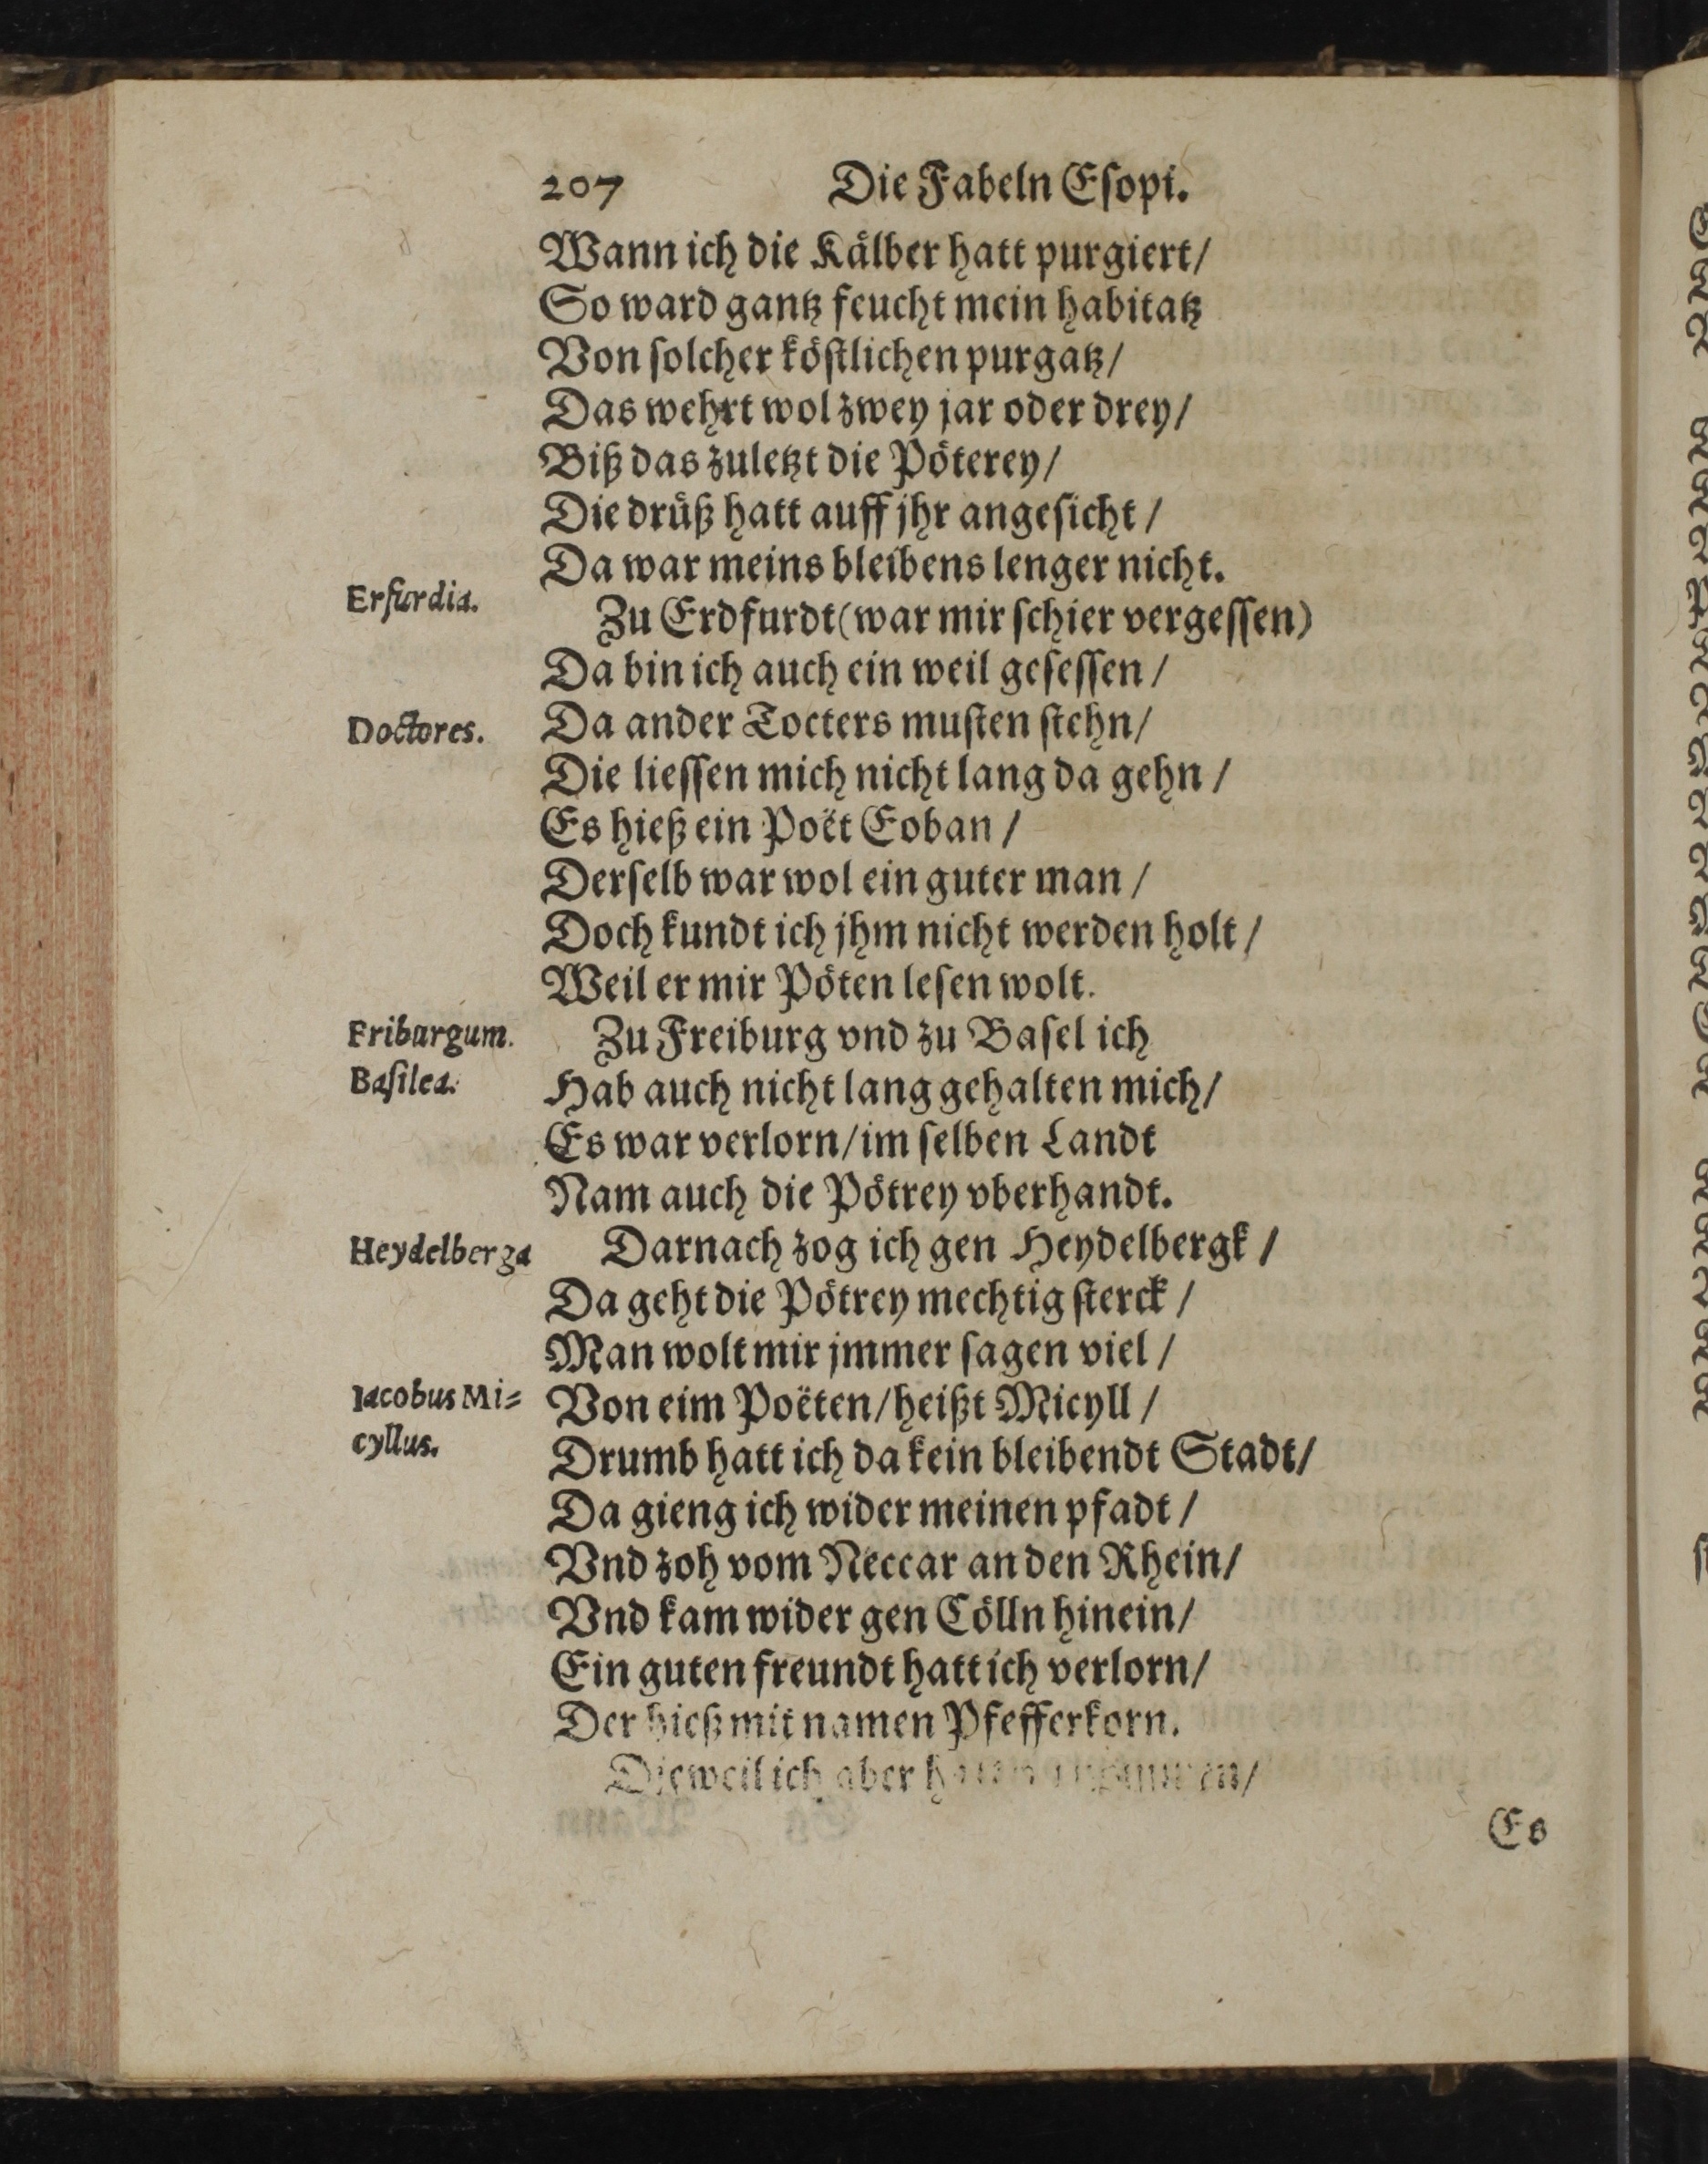 207 Die Fabeln Eſopi.
Wann ich die Kälber hatt purgiert/
So ward gantz feucht mein habitatz
Von ſolcher köſtlichen purgatz/
Das wehrt wol zwey jar oder drey/
Biß das zuletzt die Pöterey/
Die drüß hatt auff jhr angeſicht /
Da war meins bleibens lenger nicht.
Erfurdia.
Zu Erdfurdt (war mir ſchier vergeſſen)
Da bin ich auch ein weil geſeſſen /
Doctores.
Da ander Tocters muſten ſtehn/
Die lieſſen mich nicht lang da gehn /
Es hieß ein Poët Eoban /
Derſelb war wol ein guter man /
Doch kundt ich jhm nicht werden holt /
Weil er mir Pöten leſen wolt.
Fribargum.
Zu Freiburg vnd zu Baſel ich
Baſilea.
Hab auch nicht lang gehalten mich/
Es war verlorn/ im ſelben Landt
Nam auch die Pötrey vberhandt.
Heydelberga
Darnach zog ich gen Heydelbergk /
Da geht die Pötrey mechtig ſterck /
Man wolt mir jmmer ſagen viel /
Iacobus Mi⸗
cyllus.
Von eim Poëten/ heißt Micyll /
Drumb hatt ich da kein bleibendt Stadt/
Da gieng ich wider meinen pfadt /
Vnd zoh vom Neccar an den Rhein/
Vnd kam wider gen Cölln hinein/
Ein guten freundt hatt ich verlorn/
Der hieß mit namen Pfefferkorn.
Dieweil ich aber
Es